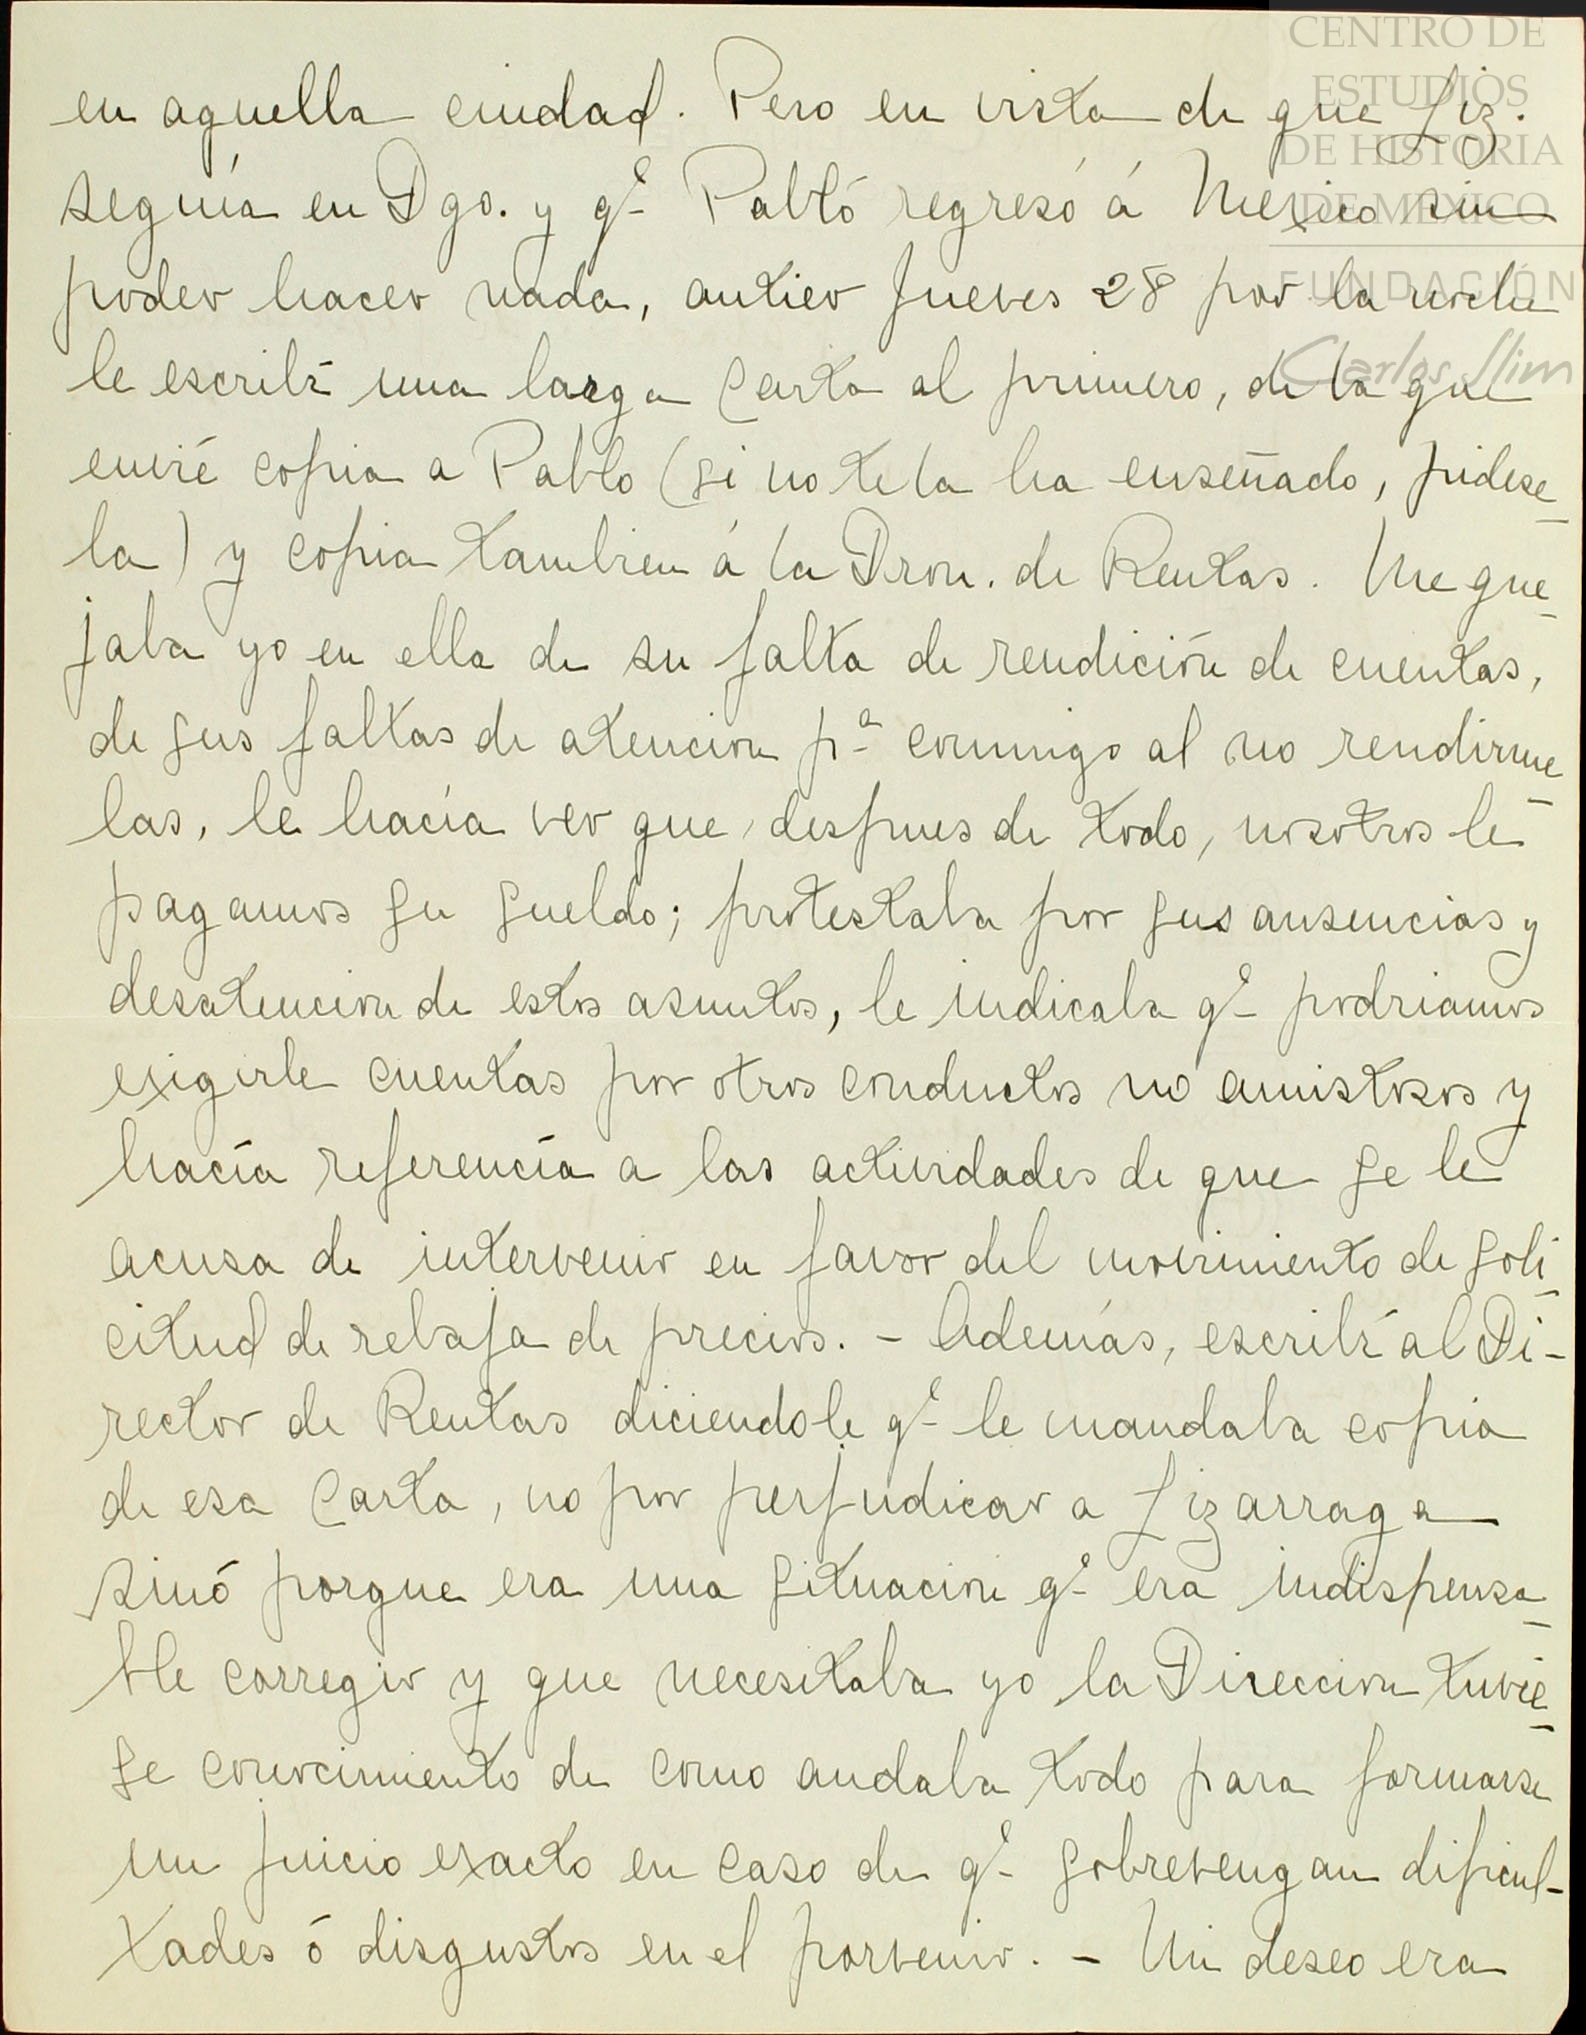 CENTRO DE
ESTUDIOS
DE HISTORIA
DE MEXICO
FUNDACIÓN
Carlos Slim
en aquella ciudad. Pero en vista de que Liz.
seguía en Dgo. y qe Pabló regresó á Mexico sin
poder hacer nada, antier Jueves 28 por la noche
le escribí una larga Carta al primero, de la que
envié copia a Pablo (si no te la ha enseñado, pidese-
la) y copia tambien á la Dron. de Rentas. Me que-
jaba yo en ella de su falta de rendición de cuentas,
de sus faltas de atencion pa conmigo al no rendirme-
las, le hacía ver que, despues de todo, nosotros le
pagamos su sueldo; protestaba por sus ausencias y
desatencion de estos asuntos, le indicaba qe podriamos
exigirle cuentas por otros conductos no amistosos y
hacía referencía a las actividades de que se le
acusa de intervenir en favor del movimiento de soli-
citud de rebaja de precios. - Además, escribí al Di-
rector de Rentas diciendole qe le mandaba copia
de esa Carta, no por perjudicar a Lizarraga
sinó porque era una situacion qe era indispensa-
ble corregir y que necesitaba yo la Direccion tuvie-
se conocimiento de como andaba todo para formarse
un juicio exacto en caso de qe sobrevengan dificul-
tades ó disgustos en el porvenir. - Mi deseo era